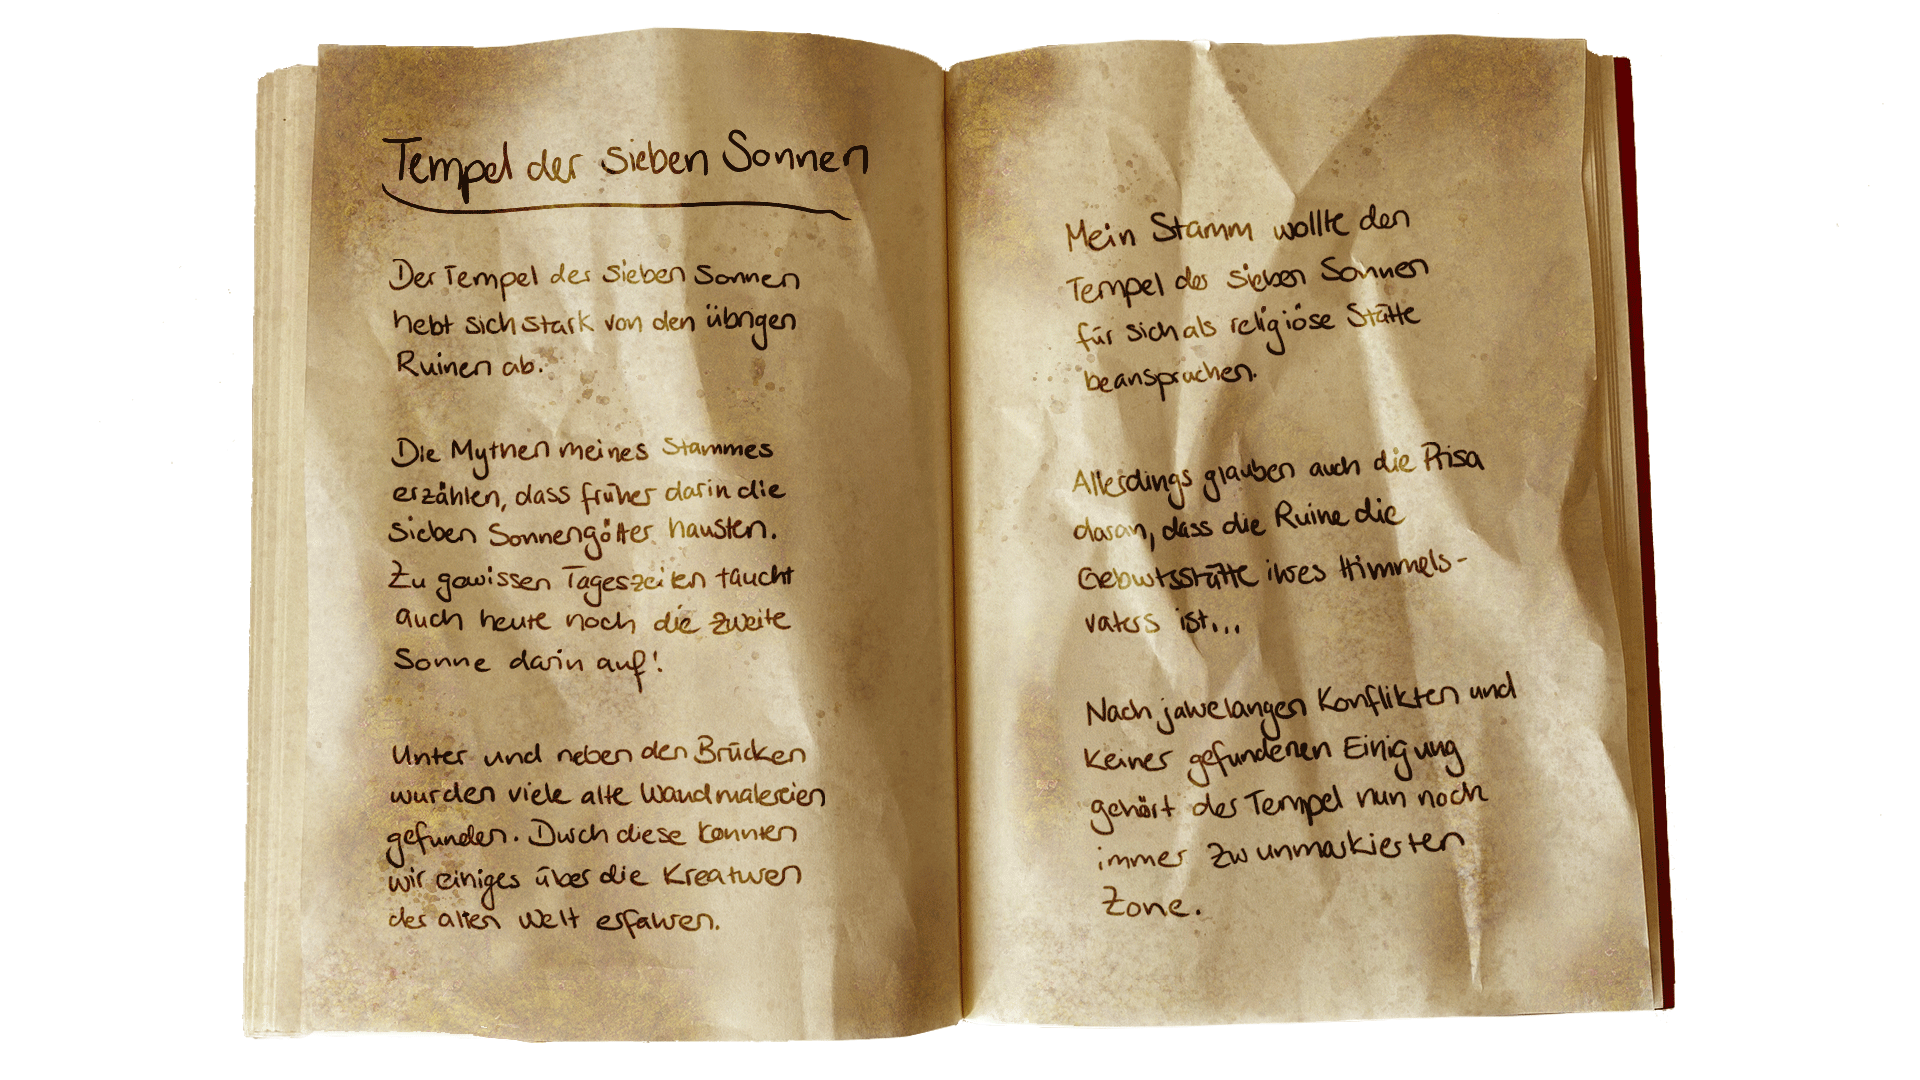 Tempel der sieben Sonnen
Der Tempel der sieben Sonnen
hebt sich stark von den übrigen
Ruinen ab.
Die Mythen meines Stammes
erzählen, dass früher darin die
sieben Sonnengötter hausten.
Zu gewissen Tageszeiten taucht
auch heute noch die zweite
Sonne darin auf!
Unter und neben den Brücken
wurden viele alte Wandmalereien
gefunden. Durch diese konnten
wir einiges über die Kreaturen
der alten Welt erfahren.
Mein Stamm wollte den
Tempel der sieben Sonnen
für sich als religiöse Stätte
beanspruchen.
Allerdings glauben auch die Prisa
daran, dass die Ruine die
Geburtsstätte ihres Himmels-
vaters ist...
Nach jahrelangen Konflikten und
keiner gefundenen Einigung
gehört der Tempel nun noch
immer zur unmarkierten
Zone.